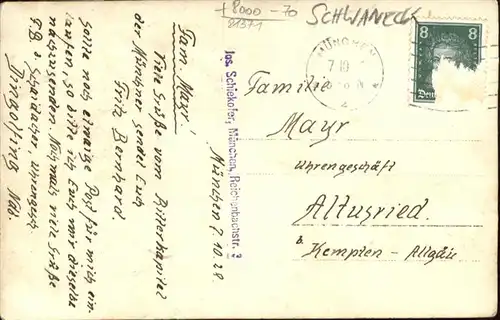 +8000 -70
81371
SCHWANECK
MÜNCHEN
7.10
2
8 8
Familie
Mayr
Uhrengeschäft
Altusried.
b. Kempten - Allgäu
Jos. Schiekofer, München, Reichenbachstr. 3
München 7.10.28
Fam. Mayr!
Viele Grüße vom Bitterkapitel
der Münchner sendet Euch
Fritz Bernhard.
Sollte noch etwaige Post für mich ein-
laufen, so bitte ich Euch mir dieselbe
nachzusenden. Nochmals viele Grüße
F.B. b. Uhrengesch.
Dingolfing Ndb.